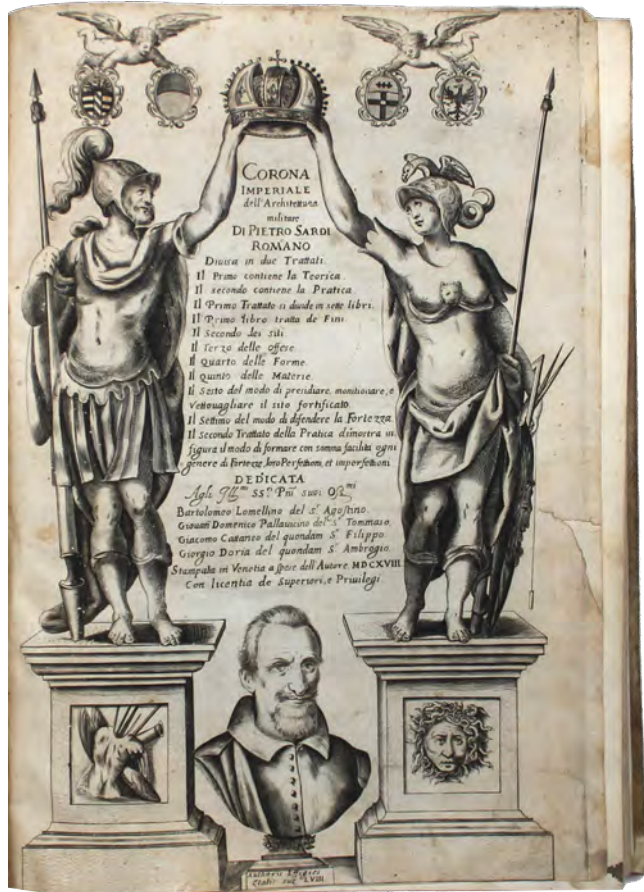 CORONA
IMPERIALE
dell'Architettura
militare
DI PIETRO SARDI
ROMANO
Diuisa in due Trattati.
Il Primo contiene la Teorica.
Il secondo contiene la Pratica.
Il Primo Trattato si diuide in sette libri.
Il Primo libro tratta de Fini.
Il Secondo dei siti.
Il Terzo delle offese.
Il Quarto delle Forme.
Il Quinto delle Materie.
Il Sesto del modo di presidiare, monitionare, e
Vettouagliare il sito fortificato.
Il Settimo del modo di difendere la Fortezza.
Il Secondo Trattato della Pratica dimostra in
figura il modo di formare con somma facilità ogni
genere di Fortezze, loro Perfettioni, et imperfettioni
DEDICATA
Agli Ill.mi SS.ri Pñi suoi
Bartolomeo Lomellino del s.r Agostino.
Giouan Domenico Pallauicino del s.r Tommaso.
Giacomo del quondam S.r Filippo.
Giorgio Doria del quondam S.r Ambrogio.
Stampata in Venetia a spese dell'Autore MDCXVIII
Con licentia de Superiori, e Priuilegi.
Authoris Effigies
Etatis suæ LVIII